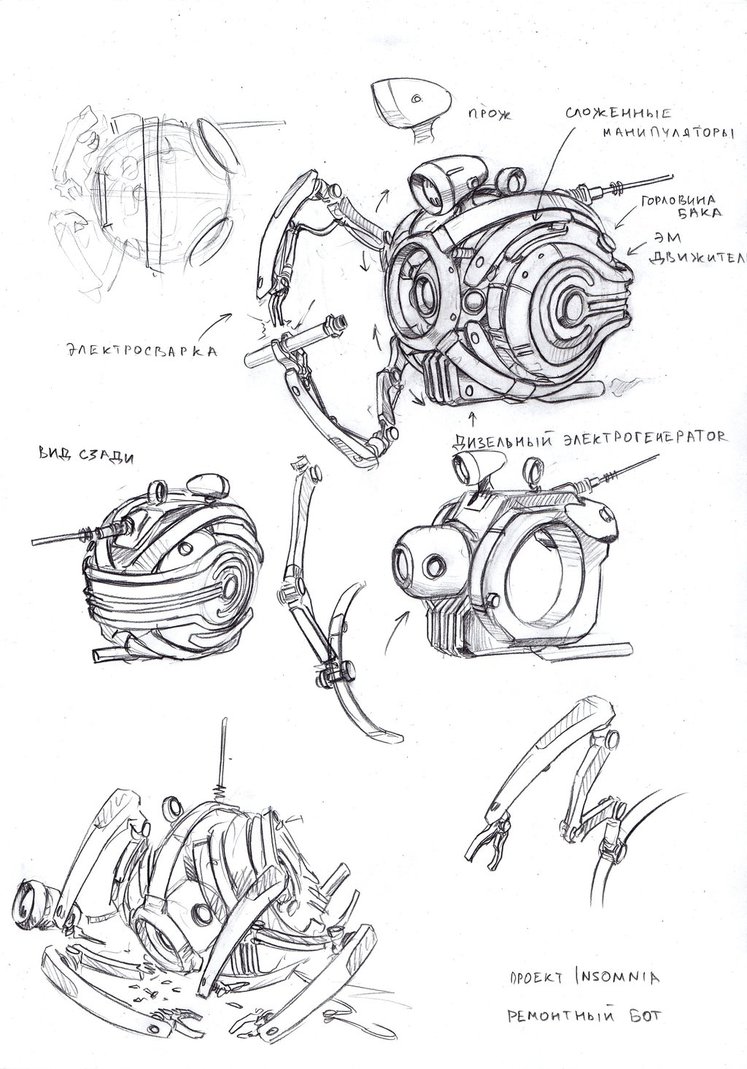 ПРОЖ
СЛОЖЕННЫЕ
МАНИПУЛЯТОРЫ
ГОРЛОВИНА
БАКА
ЭМ
ДВИЖИТЕЛ
ЭЛЕКТРОСВАРКА
ДИЗЕЛЬНЫЙ ЭЛЕКТРОГЕНЕРАТОР
ВИД СЗАДИ
ПРОЕКТ INSOMNIA
РЕМОНТНЫЙ БОТ